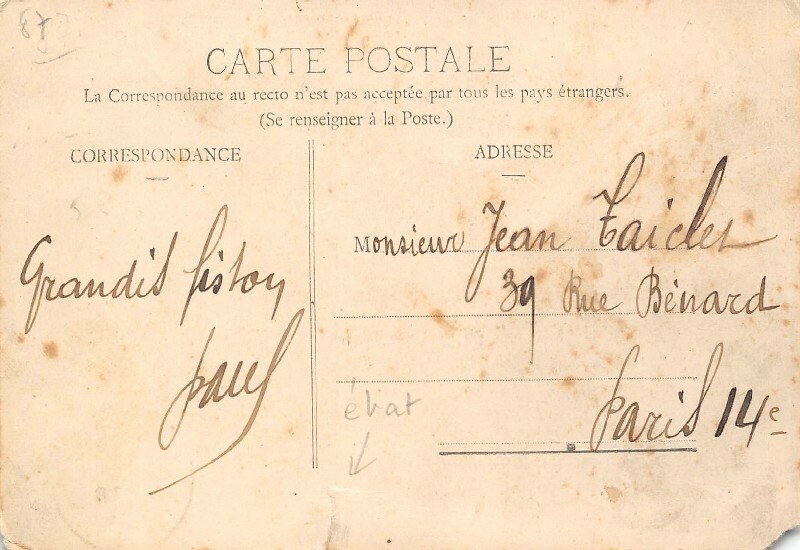 87
CARTE POSTALE
La Correspondance au recto n'est pas acceptée par tous les pays étrangers.
(Se renseigner à la Poste.)
CORRESPONDANCE
Grandis fiston
paul
ADRESSE
Monsieur Jean Taiclet
39 Rue Bénard
Paris 14e
état